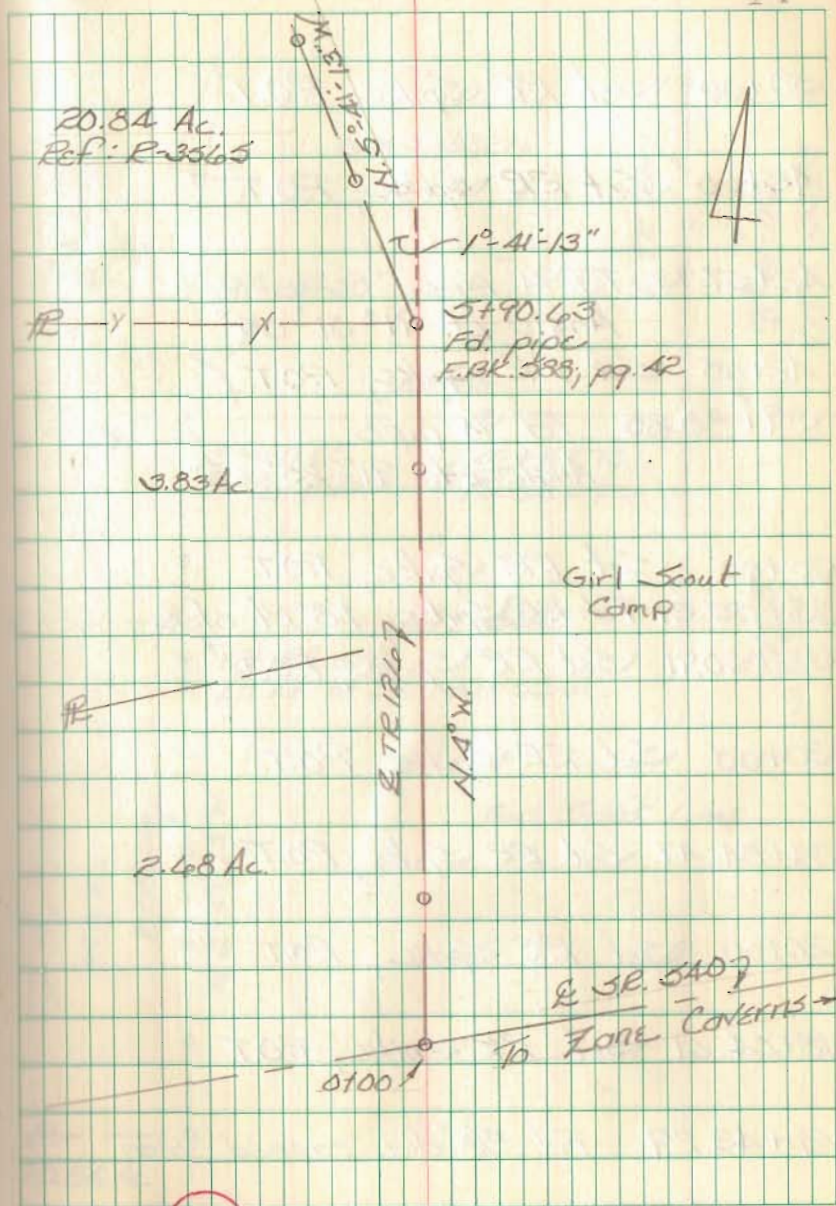 N. 5°-41'-13" W.
20.84 Ac.
Ref: R-3565
1°-41'-13"
5+90.63
Fd. pipe
F.BK. 588, pg. 42
PL
3.83 Ac.
Girl Scout
Camp
℄ TR 1267
N. 4° W.
PL
2.68 Ac.
℄ S.R. 540
To Zane Caverns
0+00